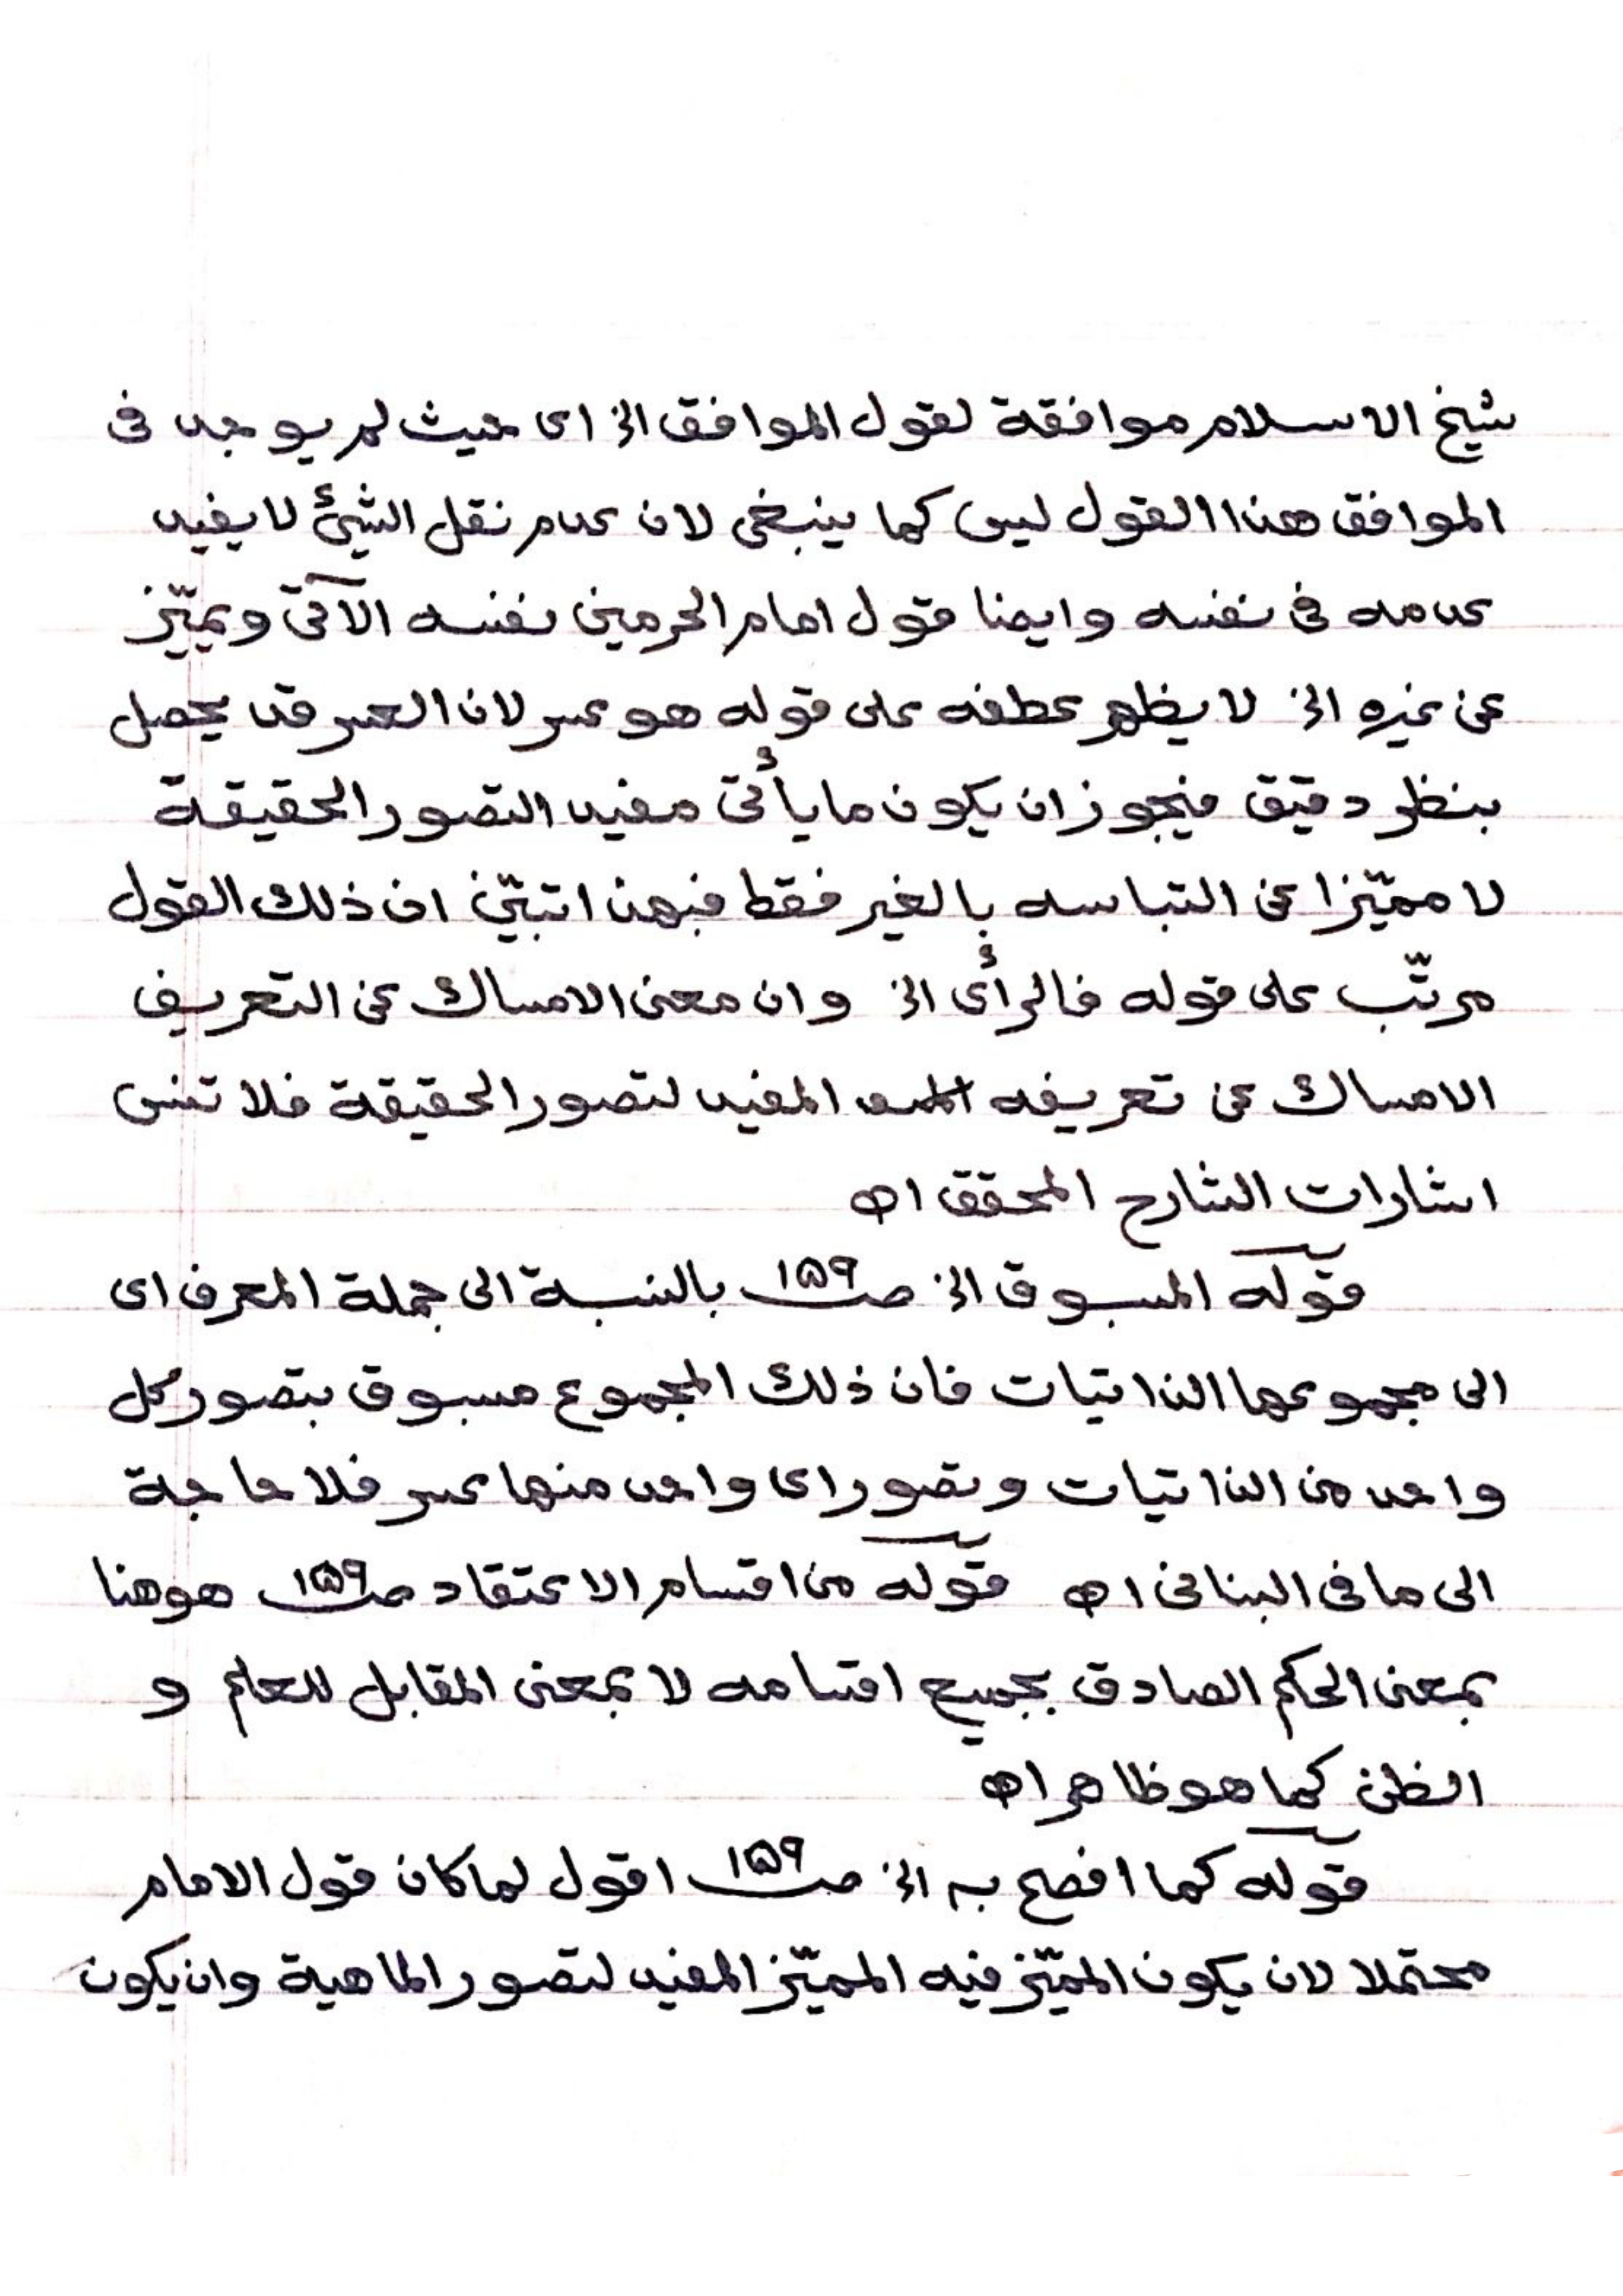 شيخ الاسلام موافقة لقول الموافق الخ اى حيث لم يوجد فى
الموافق هذا القول ليس كما ينبغى لان عدم نقل الشيئ لا يفيد
عدمه فى نفسه وايضا قول امام الحرمين نفسه الآتى ويميّز
عن غيره الخ لا يظهر عطفه على قوله هو عسر لان العسر قد يحصل
بنظر دقيق فيجوز ان يكون ما يأتى مفيد التصور الحقيقة
لا مميّزا عن التباسه بالغير فقط فبهذا تبيّن ان ذلك القول
مرتّب على قوله فالرأى الخ وان معنى الامساك عن التعريف
الامساك عن تعريفه المفيد لتصور الحقيقة فلا تنس
اشارات الشارح المحقق اه
قوله المسبوق الخ صـ ١٥٩ بالنسبة الى جملة المعرف اى
الى مجموعها الذاتيات فان ذلك المجموع مسبوق بتصور كل
واحد من الذاتيات وتصور اى واحد منها عسر فلا حاجة
الى ما فى البنانى اه قوله من اقسام الاعتقاد صـ ١٥٩ هو هنا
بمعنى الحكم الصادق بجميع اقسامه لا بمعنى المقابل للعلم و
الظن كما هو ظاهر اه
قوله كما افصح به الخ صـ ١٥٩ اقول لما كان قول الامام
محتملا لان يكون المميّز فيه المميّز المفيد لتصور الماهية وان يكون